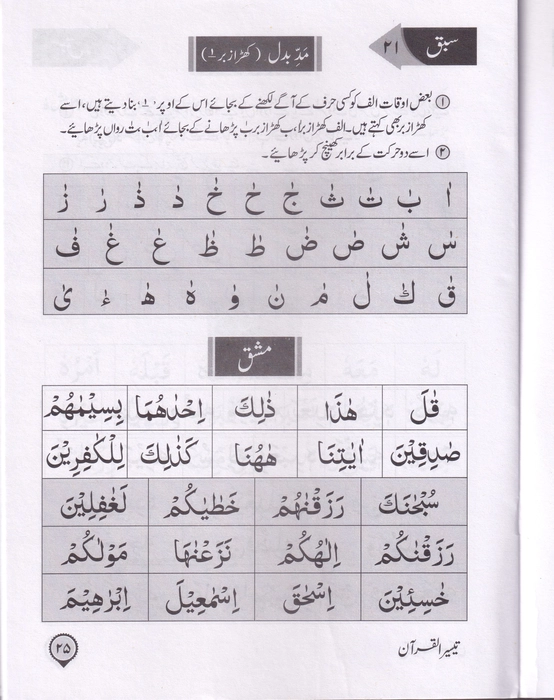 سبق ۲۱
مَدِّ بدل (کھڑا زبر ٰ)
① بعض اوقات الف کو کسی حرف کے آگے لکھنے کے بجائے اس کے اوپر ٰ بنا دیتے ہیں، اسے
کھڑا زبر بھی کہتے ہیں۔ الف کھڑا زبر اٰ، ب کھڑا زبر بٰ پڑھانے کے بجائے اٰ بٰ تٰ رواں پڑھائیے۔
② اسے دو حرکت کے برابر کھینچ کر پڑھائیے۔
اٰ بٰ تٰ ثٰ جٰ حٰ خٰ دٰ ذٰ رٰ زٰ
سٰ شٰ صٰ ضٰ طٰ ظٰ عٰ غٰ فٰ
قٰ كٰ لٰ مٰ نٰ وٰ هٰ ھٰ ءٰ یٰ
مشق
قٰلَ هٰذَا ذٰلِكَ اِحْدٰهُمَا بِسِيْمٰهُمْ
صٰدِقِيْنَ اٰيٰتِنَا هٰهُنَا كَذٰلِكَ لِلْكٰفِرِيْنَ
سُبْحٰنَكَ رَزَقْنٰهُمْ خَطٰيٰكُمْ لَغٰفِلِيْنَ
رَزَقْنٰكُمْ اِلٰهُكُمْ نَزَعْنٰهَا مَوْلٰكُمْ
خٰسِئِيْنَ اِسْحٰقَ اِسْمٰعِيْلَ اِبْرٰهِيْمَ
تیسیر القرآن ۲۵